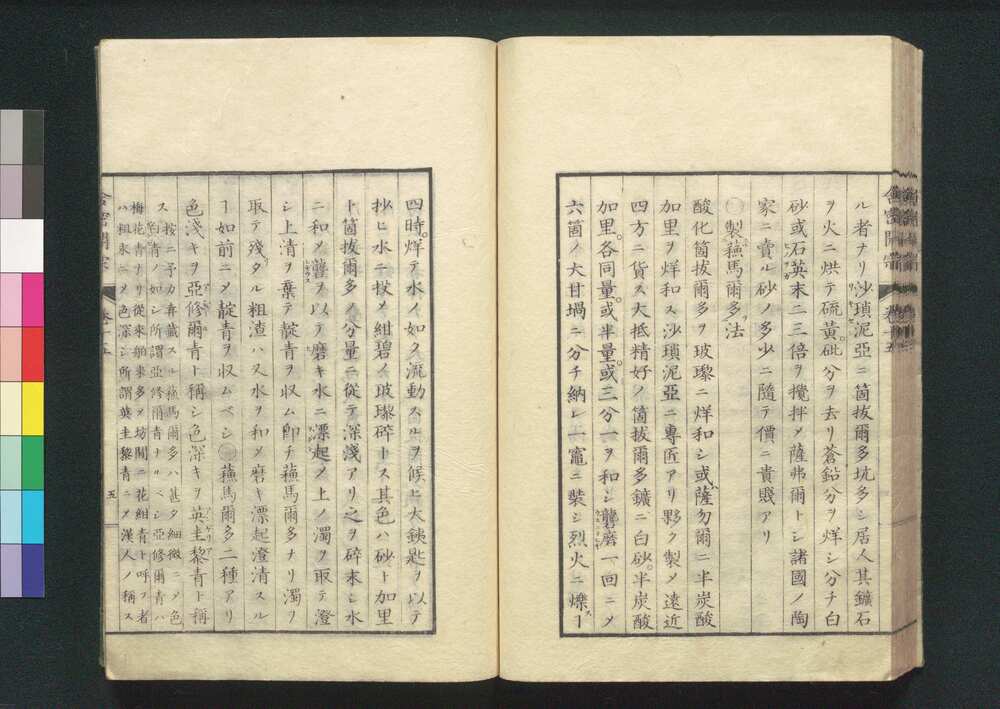 ル者ナリ沙瑣泥亞ニ箇拔爾多坑多シ居人其鑛石
ヲ火ニ烘テ硫黄砒分ヲ去リ蒼鉛分ヲ烊シ分チ白
砂或石英末二三倍ヲ攪拌メ薩弗爾トシ諸國ノ陶
家ニ賣ル砂ノ多少ニ隨テ價ニ貴賤アリ
○製蘓馬爾多法
酸化箇拔爾多ヲ玻瓈ニ烊和シ或薩勿爾ニ半炭酸
加里ヲ烊和ス沙瑣泥亞ニ專匠アリ夥ク製メ遠近
四方ニ貨ス大抵精好ノ箇拔爾多鑛ニ白砂半炭酸
加里各同量或半量或三分一ヲ和シ礱磨一回ニメ
六箇ノ大甘堝ニ分チ納レ一竈ニ裝シ烈火ニ爍ー
四時烊テ水ノ如ク流動スルヲ候ヒ大鐵匙ヲ以テ
抄ヒ水ニ投メ紺碧ノ玻瓈碎トス其色ハ砂ト加里
ト箇拔爾多ノ分量ニ從テ深淺アリ之ヲ碎末シ水
ニ和メ礱ヲ以テ磨キ水ニ漂起メ上ノ濁ヲ取テ澄
シ上清ヲ棄テ靛青ヲ収ム即チ蘓馬爾多ナリ濁ヲ
取テ殘タル粗渣ハ又水ヲ和メ磨キ漂起澄清スル
ー如前ニメ靛青ヲ収ムベシ○蘓馬爾多二種アリ
色淺キヲ亞修爾青ト稱シ色深キヲ英圭黎青ト稱
ス 按ニ予カ弆藏スル蘓馬爾多ハ甚タ細微ニメ色
白青ノ如シ所謂亞修爾青ナルベシ亞修爾青ハ
梅花青ナリ從來舶來多メ坊間ニ花紺青ト呼フ者
ハ粗末ニメ色深シ所謂英圭黎青ニメ漢人ノ稱ス
舎密開宗
卷十五
五